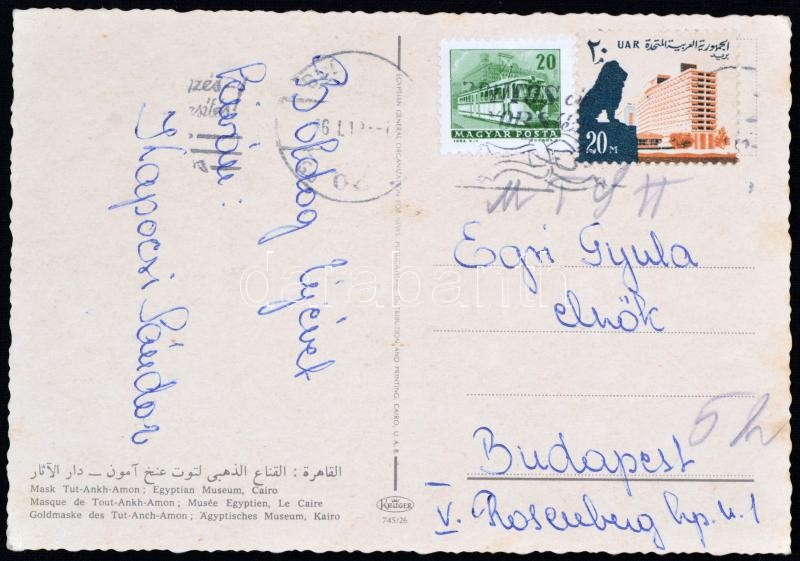 Boldog Újévet
kíván:
Kapocsi Sándor
القاهرة : القناع الذهبى لتوت عنخ آمون — دار الآثار
Mask Tut-Ankh-Amon; Egyptian Museum, Cairo
Masque de Tout-Ankh-Amon; Musée Egyptien, Le Caire
Goldmaske des Tut-Anch-Amon; Ägyptisches Museum, Kairo
EGYPTIAN GENERAL ORGANIZATION FOR NEWS, PUBLICATIONS, DISTRIBUTION AND PRINTING, CAIRO, U.A.R.
KRÜGER
745/26
20
MAGYAR POSTA
٢٠
UAR الجمهورية العربية المتحدة
بريد
20 M
MTSH
Egri Gyula
elnök
5 h
Budapest
V. Rosenberg hp. u. 1
darabanth